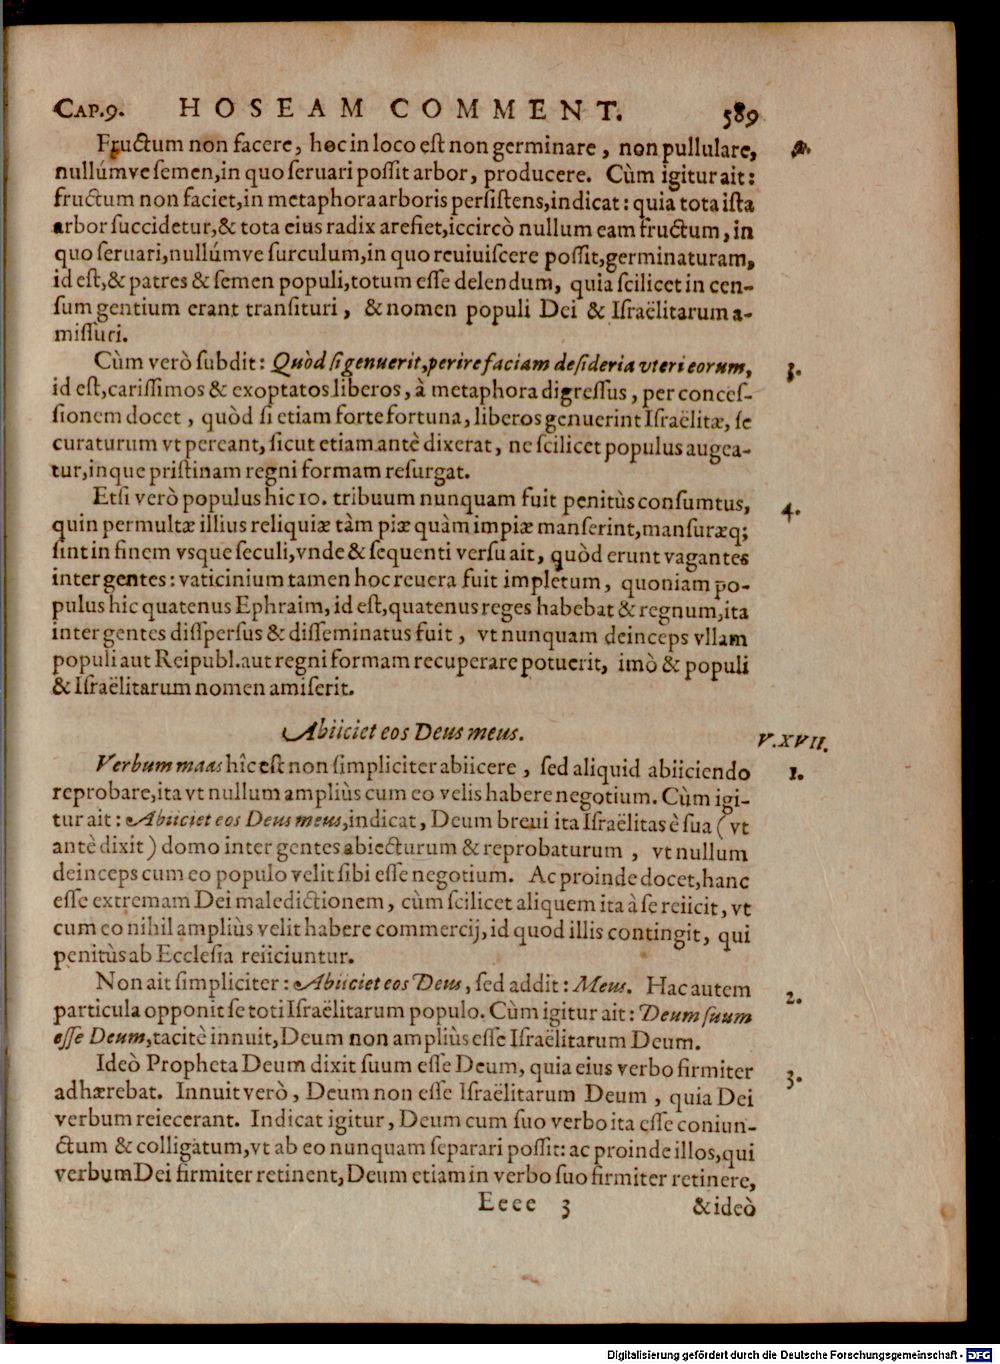 CAP.9. HOSEAM COMMENT. 589
Fructum non facere, hoc in loco est non germinare, non pullulare, 2.
nullúmve semen, in quo seruari possit arbor, producere. Cùm igitur ait:
fructum non faciet, in metaphora arboris persistens, indicat: quia tota ista
arbor succidetur, & tota eius radix arefiet, iccircò nullum eam fructum, in
quo seruari, nullúmve surculum, in quo reuiuiscere possit, germinaturam,
id est, & patres & semen populi, totum esse delendum, quia scilicet in cen-
sum gentium erant transituri, & nomen populi Dei & Israëlitarum a-
missuri.
Cùm verò subdit: Quòd si genuerit, perire faciam desideria vteri eorum, 3.
id est, carissimos & exoptatos liberos, à metaphora digressus, per conces-
sionem docet, quòd si etiam forte fortuna, liberos genuerint Israëlitæ, se
curaturum vt pereant, sicut etiam antè dixerat, ne scilicet populus augea-
tur, inque pristinam regni formam resurgat.
Etsi verò populus hic 10. tribuum nunquam fuit penitùs consumtus, 4.
quin permultæ illius reliquiæ tàm piæ quàm impiæ manserint, mansuræq;
sint in finem vsque seculi, vnde & sequenti versu ait, quòd erunt vagantes
inter gentes: vaticinium tamen hoc reuera fuit impletum, quoniam po-
pulus hic quatenus Ephraim, id est, quatenus reges habebat & regnum, ita
inter gentes disspersus & disseminatus fuit, vt nunquam deinceps vllam
populi aut Reipubl. aut regni formam recuperare potuerit, imò & populi
& Israëlitarum nomen amiserit.
Abiiciet eos Deus meus. V.XVII.
Verbum maas hîc est non simpliciter abiicere, sed aliquid abiiciendo 1.
reprobare, ita vt nullum ampliùs cum eo velis habere negotium. Cùm igi-
tur ait: Abiiciet eos Deus meus, indicat, Deum breui ita Israëlitas è sua (vt
antè dixit) domo inter gentes abiecturum & reprobaturum, vt nullum
deinceps cum eo populo velit sibi esse negotium. Ac proinde docet, hanc
esse extremam Dei maledictionem, cùm scilicet aliquem ita à se reiicit, vt
cum eo nihil ampliùs velit habere commercij, id quod illis contingit, qui
penitùs ab Ecclesia reiiciuntur.
Non ait simpliciter: Abiiciet eos Deus, sed addit: Meus. Hac autem 2.
particula opponit se toti Israëlitarum populo. Cùm igitur ait: Deum suum
esse Deum, tacitè innuit, Deum non ampliùs esse Israëlitarum Deum.
Ideò Propheta Deum dixit suum esse Deum, quia eius verbo firmiter 3.
adhærebat. Innuit verò, Deum non esse Israëlitarum Deum, quia Dei
verbum reiecerant. Indicat igitur, Deum cum suo verbo ita esse coniun-
ctum & colligatum, vt ab eo nunquam separari possit: ac proinde illos, qui
verbum Dei firmiter retinent, Deum etiam in verbo suo firmiter retinere,
Eeee 3 & ideò
Digitalisierung gefördert durch die Deutsche Forschungsgemeinschaft - DFG